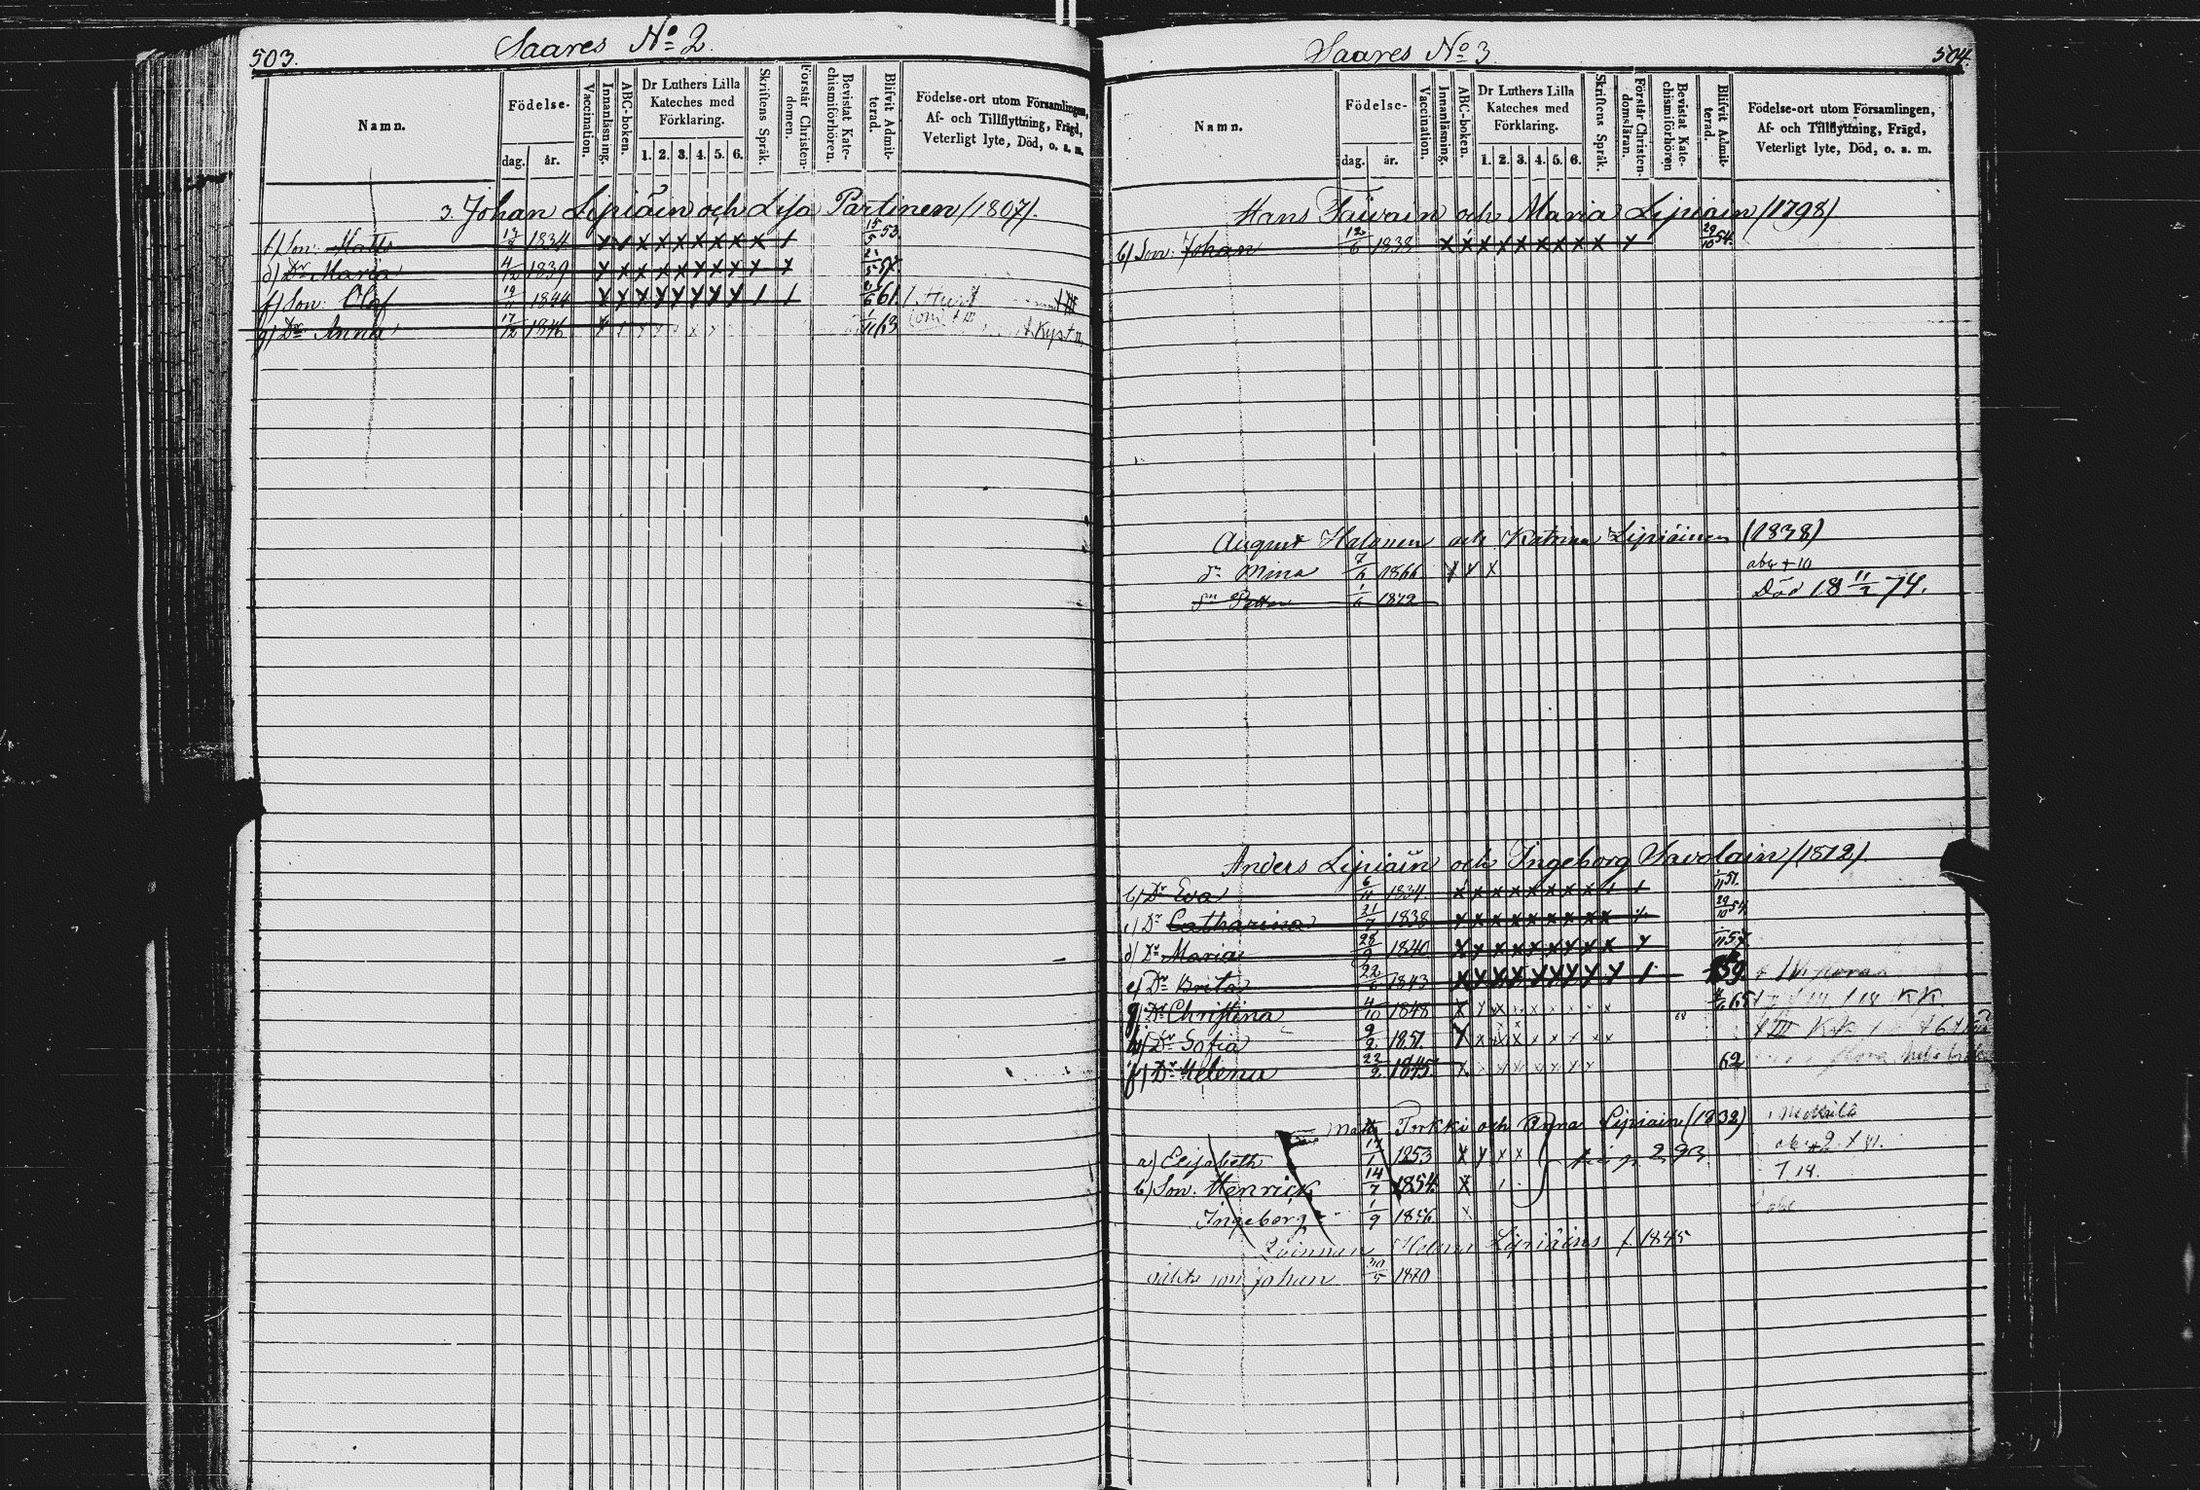 503.
Saares No 2.
Namn.
Födelse-
dag.
år.
Vaccination.
Innanläsning.
ABC-boken.
Dr Luthers Lilla
Kateches med
Förklaring.
1. 2. 3. 4. 5. 6.
Skriftens Språk.
Förstår Christen-
domen.
Bevistat Kate-
chismiförhören.
Blifvit Admit-
terad.
Födelse-ort utom Församlingen,
Af- och Tillflyttning, Frägd,
Veterligt lyte, Död, o. s. m.
3. Johan Lipiäin och Lisa Partinen (1807).
b) Son: Matts 1834 x x x x x x x x x / 15/5 53
d) Dr Maria 4/12 1839 x x x x x x x x x x 57.
f) Son: Olof 19/11 1844 x x x x x x x x / / 61
g) Dr Anna 17/12 1846 x 1/11 63
Saares No 3.
504.
Namn.
Födelse-
dag.
år.
Vaccination.
Innanläsning.
ABC-boken.
Dr Luthers Lilla
Kateches med
Förklaring.
1. 2. 3. 4. 5. 6.
Skriftens Språk.
Förstår Christen-
domsläran.
Bevistat Kate-
chismiförhören
Blifvit Admit-
terad.
Födelse-ort utom Församlingen,
Af- och Tillflyttning, Frägd,
Veterligt lyte, Död, o. s. m.
Hans Taivain och Maria Lipiäin (1798)
b) Son: Johan 12/6 1838 x x x x x x x x x x 29/10 54.
August Halonen och Katrina Lipiäinen (1838)
dr Mina 7/6 1866 x x x abc + 10
sn Petter 1/6 1872 Död 18 11/2 74.
Anders Lipiäin och Ingeborg Savolain (1812)
b) Dr Eva 6/11 1834 x x x x x x x x / / 1/11 51.
c) Dr Catharina 21/7 1838 x x x x x x x x x 29/10 54
d) Dr Maria 28/9 1840 x x x x x x x x x x 57
e) Dr Brita 22/6 1843 x x x x x x x x x / 59
g) Dr Christina 4/10 1848 x x x x x x x x x 65 KK.
h) Dr Sofia 9/2 1851. x x x x x x x x x
f) Dr Helena 22/2 1845. x x x x x x x x 62
Matts Torkki och Anna Lipiain (1832)
a) Elisabeth 17/1 1853 x x x x p 293
b) Son. Henrick 14/7 1854 x
Ingeborg 1/9 1856 x abc
Qvinnan Helena Lipiäins f. 1845
oäkta son Johan 30/5 1870